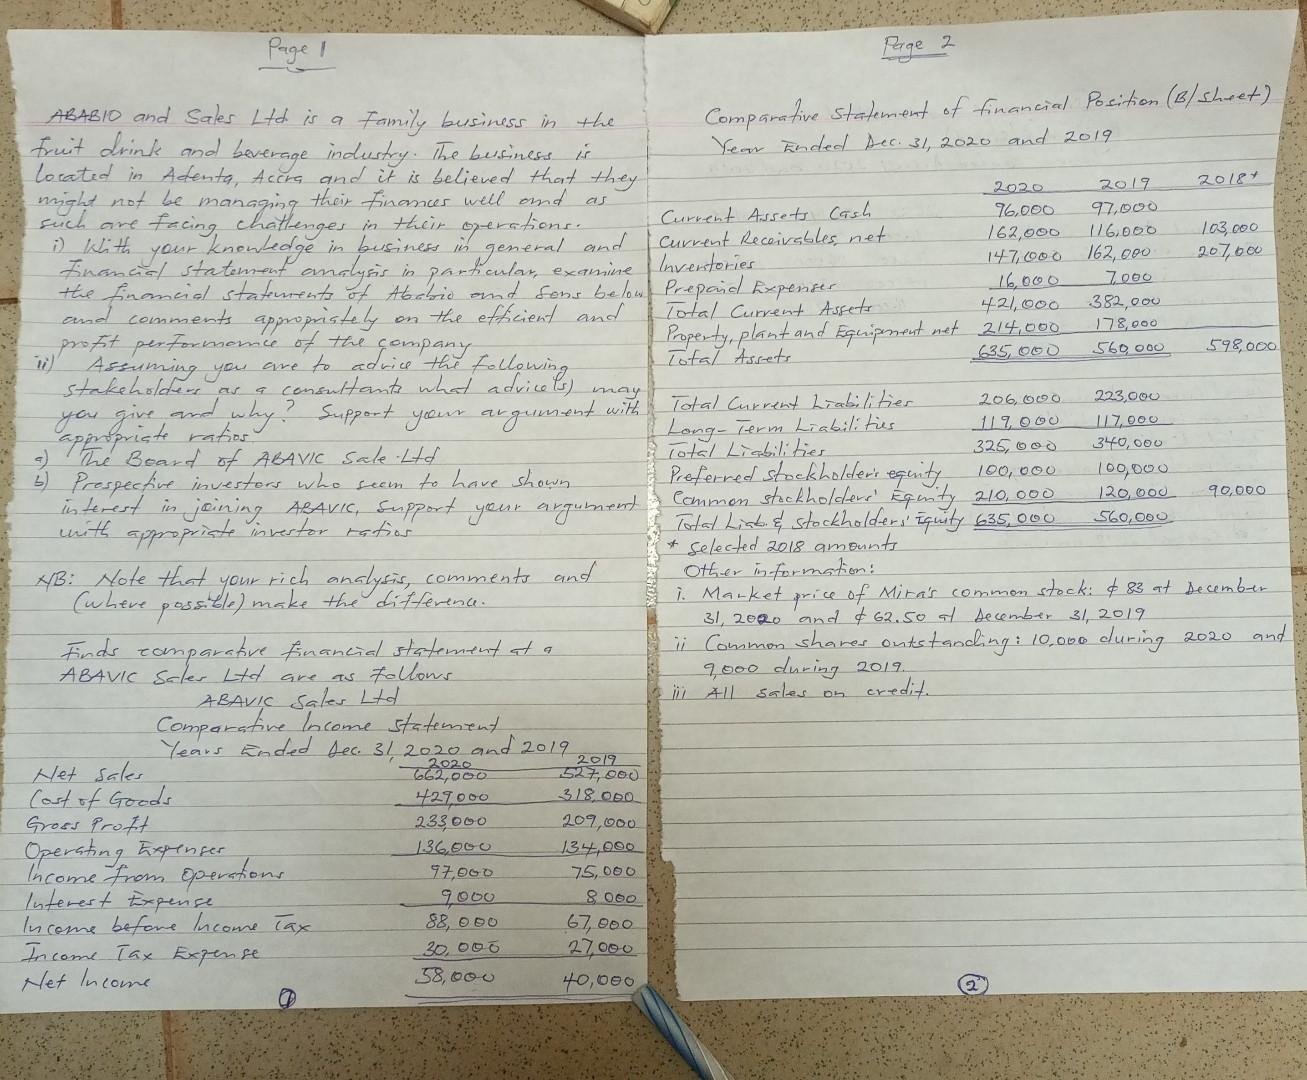 Page 1
ABABIO and Sales Ltd is a Family business in the
fruit drink and beverage industry. The business is
located in Adenta, Accra and it is believed that they
might not be managing their finances well and as
such are facing challenges in their operations.
i) With your knowledge in business in general and
financial statement analysis in particular, examine
the financial statements of Ababio and Sons below
and comments appropriately on the efficient and
profit performance of the company
ii) Assuming you are to advice the following
stakeholders as a consultants what advice(s) may
you give and why? Support your argument with
appropriate ratios
a) The Board of ABAVIC Sale Ltd
b) Prospective investors who seem to have shown
interest in joining ABAVIC, Support your argument
with appropriate investor ratios
NB: Note that your rich analysis, comments and
(where possible) make the difference.
Finds comparative financial statement at a
ABAVIC Sales Ltd are as follows
ABAVIC Sales Ltd
Comparative Income Statement
Years Ended Dec. 31, 2020 and 2019
2020 2019
Net Sales 662,000 527,000
Cost of Goods 429,000 318,000
Gross Profit 233,000 209,000
Operating Expenses 136,000 134,000
Income from Operations 97,000 75,000
Interest Expense 9,000 8,000
Income before Income Tax 88,000 67,000
Income Tax Expense 30,000 27,000
Net Income 58,000 40,000
1
Page 2
Comparative Statement of financial Position (B/sheet)
Year Ended Dec. 31, 2020 and 2019
2020 2019 2018*
Current Assets Cash 96,000 97,000
Current Receivables, net 162,000 116,000 103,000
Inventories 147,000 162,000 207,000
Prepaid Expenses 16,000 7,000
Total Current Assets 421,000 382,000
Property, plant and Equipment net 214,000 178,000
Total Assets 635,000 560,000 598,000
Total Current Liabilities 206,000 223,000
Long-Term Liabilities 119,000 117,000
Total Liabilities 325,000 340,000
Preferred stockholder's equity 100,000 100,000
Common stockholders' Equity 210,000 120,000 90,000
Total Liab. & stockholders' Equity 635,000 560,000
* selected 2018 amounts
Other information:
i. Market price of Mira's common stock: ¢ 83 at December
31, 2020 and ¢ 62.50 at December 31, 2019
ii Common shares outstanding: 10,000 during 2020 and
9,000 during 2019.
iii All sales on credit.
2